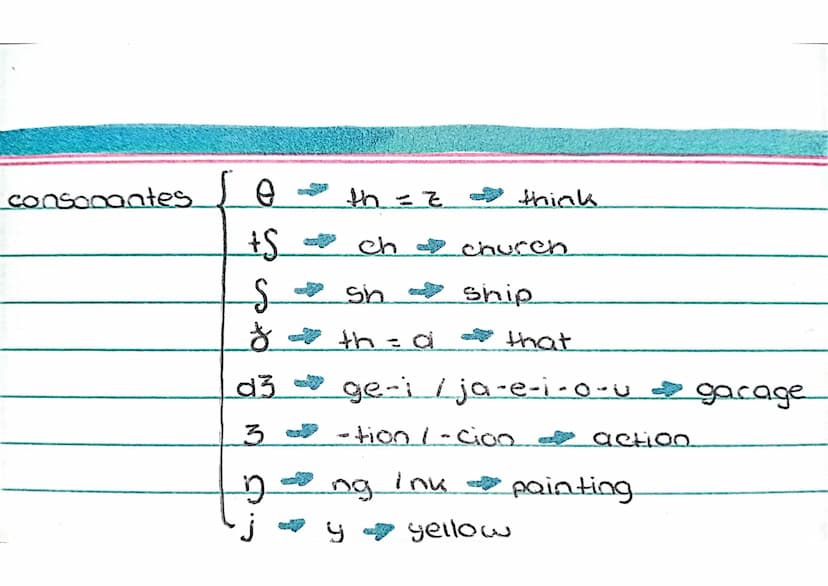 consonantes { θ → th = z → think
tʃ → ch → church
ʃ → sh → ship
ð → th = d → that
dʒ → ge-i / ja-e-i-o-u → garage
ʒ → -tion / -cion → action
ŋ → ng / nk → painting
j → y → yellow